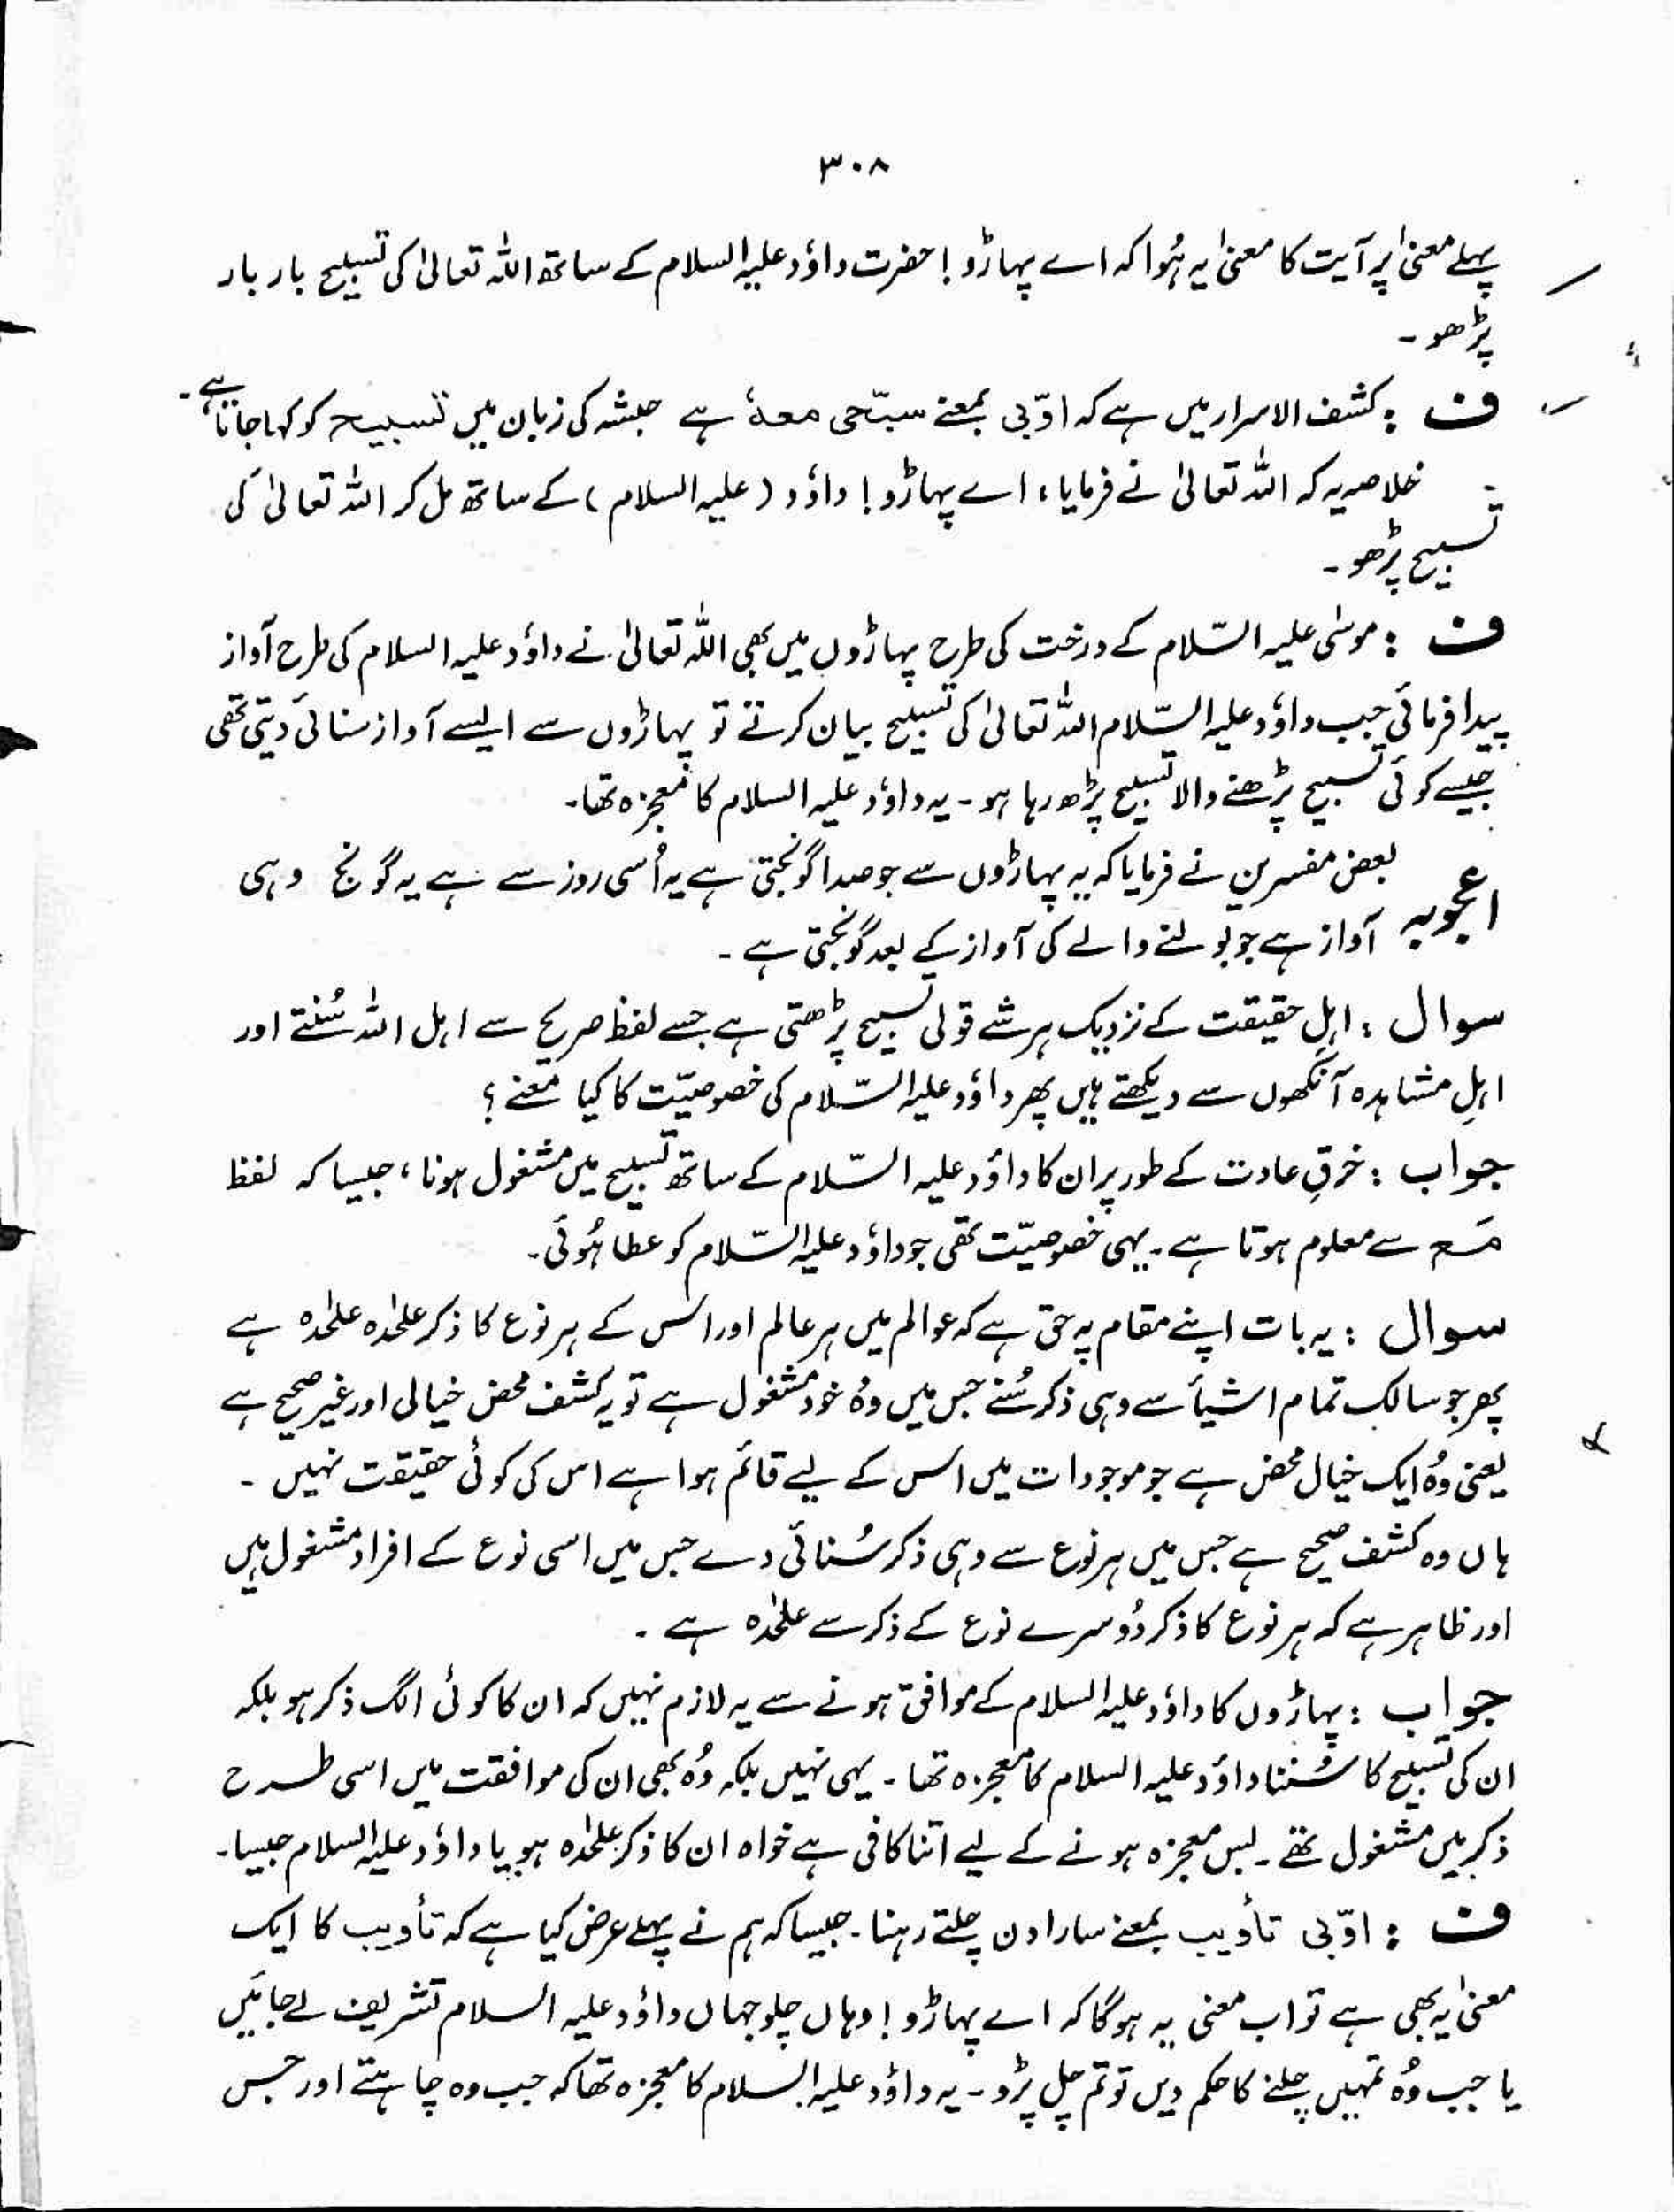 ۳۰۸
پہلے معنیٰ پر آیت کا معنیٰ یہ ہُوا کہ اے پہاڑو! حضرت داؤد علیہ السلام کے ساتھ اللہ تعالیٰ کی تسبیح بار بار
پڑھو۔
ف : کشف الاسرار میں ہے کہ اوّبی بمعنے سبّحی معہٗ ہے حبشہ کی زبان میں تسبیح کو کہا جاتا ہے۔
خلاصہ یہ کہ اللہ تعالیٰ نے فرمایا، اے پہاڑو! داؤد (علیہ السلام) کے ساتھ مل کر اللہ تعالیٰ کی
تسبیح پڑھو۔
ف : موسٰی علیہ السّلام کے درخت کی طرح پہاڑوں میں بھی اللہ تعالیٰ نے داؤد علیہ السلام کی طرح آواز
پیدا فرمائی جب داؤد علیہ السّلام اللہ تعالیٰ کی تسبیح بیان کرتے تو پہاڑوں سے ایسے آواز سنائی دیتی تھی
جیسے کوئی تسبیح پڑھنے والا تسبیح پڑھ رہا ہو۔ یہ داؤد علیہ السلام کا معجزہ تھا۔
اعجوبہ بعض مفسرین نے فرمایا کہ یہ پہاڑوں سے جو صدا گونجتی ہے یہ اُسی روز سے ہے یہ گونج وہی
آواز ہے جو بولنے والے کی آواز کے بعد گونجتی ہے۔
سوال : اہلِ حقیقت کے نزدیک ہر شے قولی تسبیح پڑھتی ہے جسے لفظ صریح سے اہل اللہ سُنتے اور
اہلِ مشاہدہ آنکھوں سے دیکھتے ہیں پھر داؤد علیہ السّلام کی خصوصیّت کا کیا معنے؟
جواب : خرقِ عادت کے طور پر ان کا داؤد علیہ السّلام کے ساتھ تسبیح میں مشغول ہونا، جیسا کہ لفظ
مَع سے معلوم ہوتا ہے۔ یہی خصوصیّت تھی جو داؤد علیہ السّلام کو عطا ہُوئی۔
سوال : یہ بات اپنے مقام پہ حق ہے کہ عوالم میں ہر عالم اور اس کے ہر نوع کا ذکر علٰحدہ علٰحدہ ہے
پھر جو سالک تمام اشیأ سے وہی ذکر سُنے جس میں وہُ خود مشغول ہے تو یہ کشف محض خیالی اور غیر صحیح ہے
یعنی وہُ ایک خیال محض ہے جو موجودات میں اس کے لیے قائم ہوا ہے اس کی کوئی حقیقت نہیں۔
ہاں وہ کشف صحیح ہے جس میں ہر نوع سے وہی ذکر سُنائی دے جس میں اسی نوع کے افراد مشغول ہیں
اور ظاہر ہے کہ ہر نوع کا ذکر دُوسرے نوع کے ذکر سے علٰحدہ ہے۔
جواب : پہاڑوں کا داؤد علیہ السلام کے موافق ہونے سے یہ لازم نہیں کہ ان کا کوئی الگ ذکر ہو بلکہ
ان کی تسبیح کا سُننا داؤد علیہ السلام کا معجزہ تھا۔ یہی نہیں بلکہ وُہ بھی ان کی موافقت میں اسی طرح
ذکر میں مشغول تھے۔ بس معجزہ ہونے کے لیے اتنا کافی ہے خواہ ان کا ذکر علٰحدہ ہو یا داؤد علیہ السلام جیسا۔
ف : اوّبی تأویب بمعنے سارا دن چلتے رہنا۔ جیسا کہ ہم نے پہلے عرض کیا ہے کہ تأویب کا ایک
معنیٰ یہ بھی ہے تو اب معنیٰ یہ ہوگا کہ اے پہاڑو! وہاں چلو جہاں داؤد علیہ السلام تشریف لے جائیں
یا جب وُہ تمہیں چلنے کا حکم دیں تو تم چل پڑو۔ یہ داؤد علیہ السلام کا معجزہ تھا کہ جب وہ چاہتے اور جس